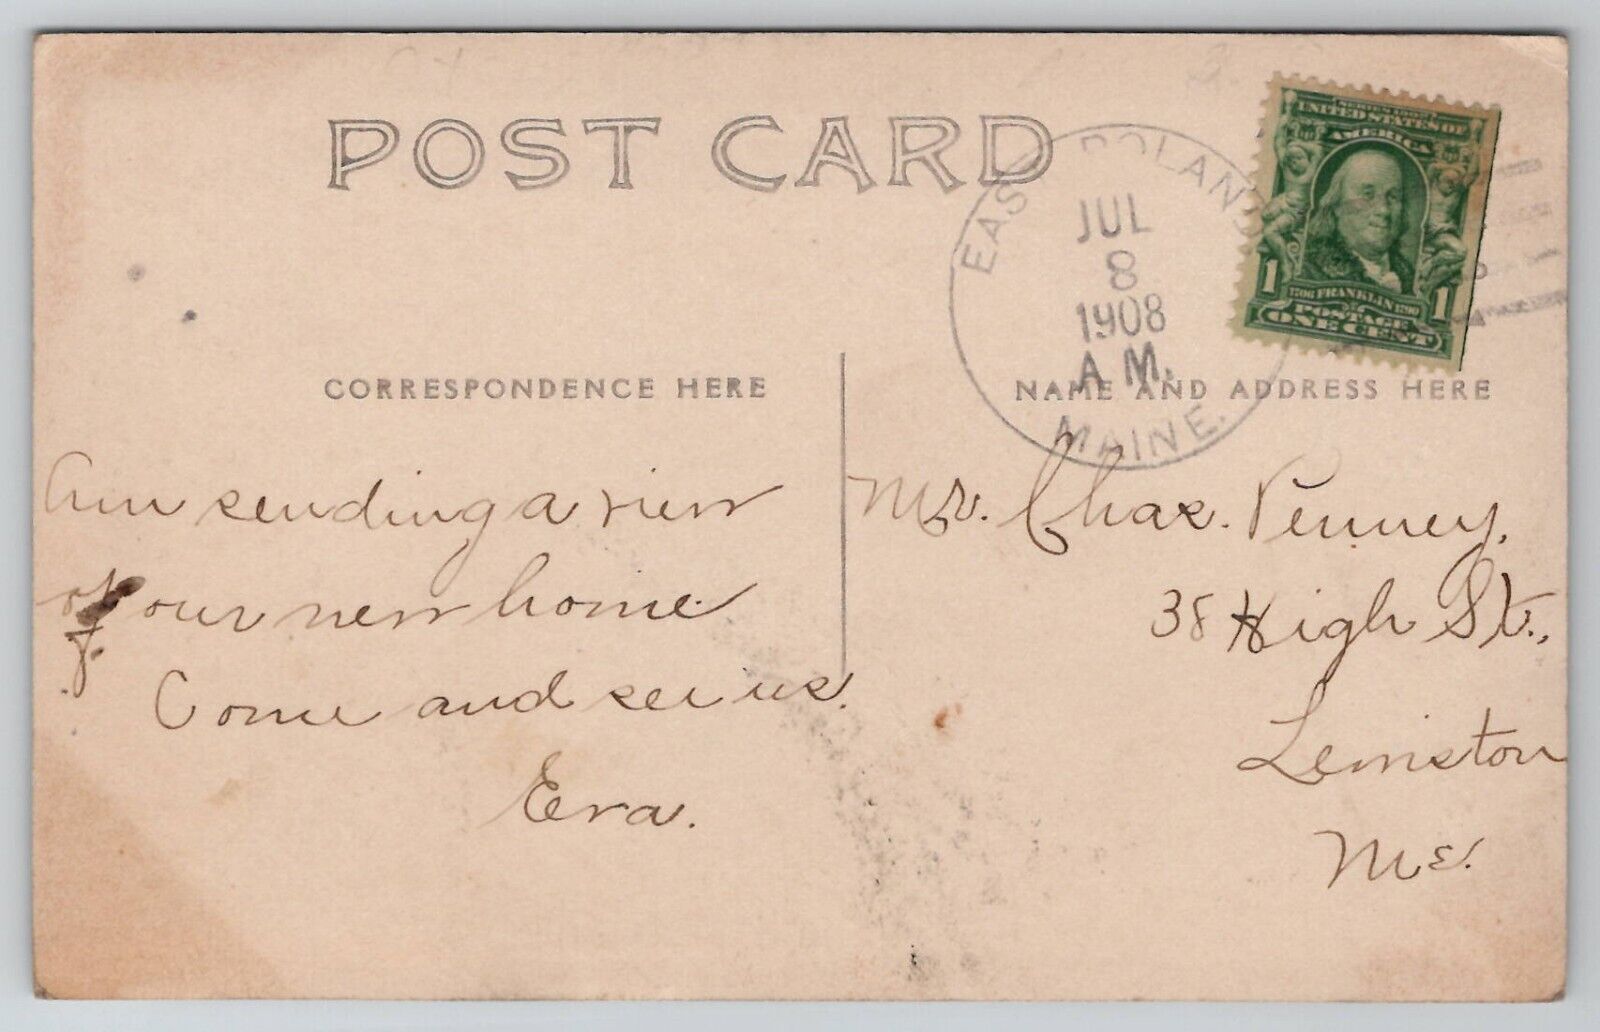 POST CARD
EAST POLAND
JUL
8
1908
A.M.
MAINE.
SERIES 1902
UNITED STATES OF
AMERICA
1 1706 FRANKLIN 1790 1
POSTAGE
ONE CENT
CORRESPONDENCE HERE
NAME AND ADDRESS HERE
Am sending a view
of our new home.
Come and see us.
Eva.
Mr. Chas. Penney,
38 High St.,
Lewiston
Me.